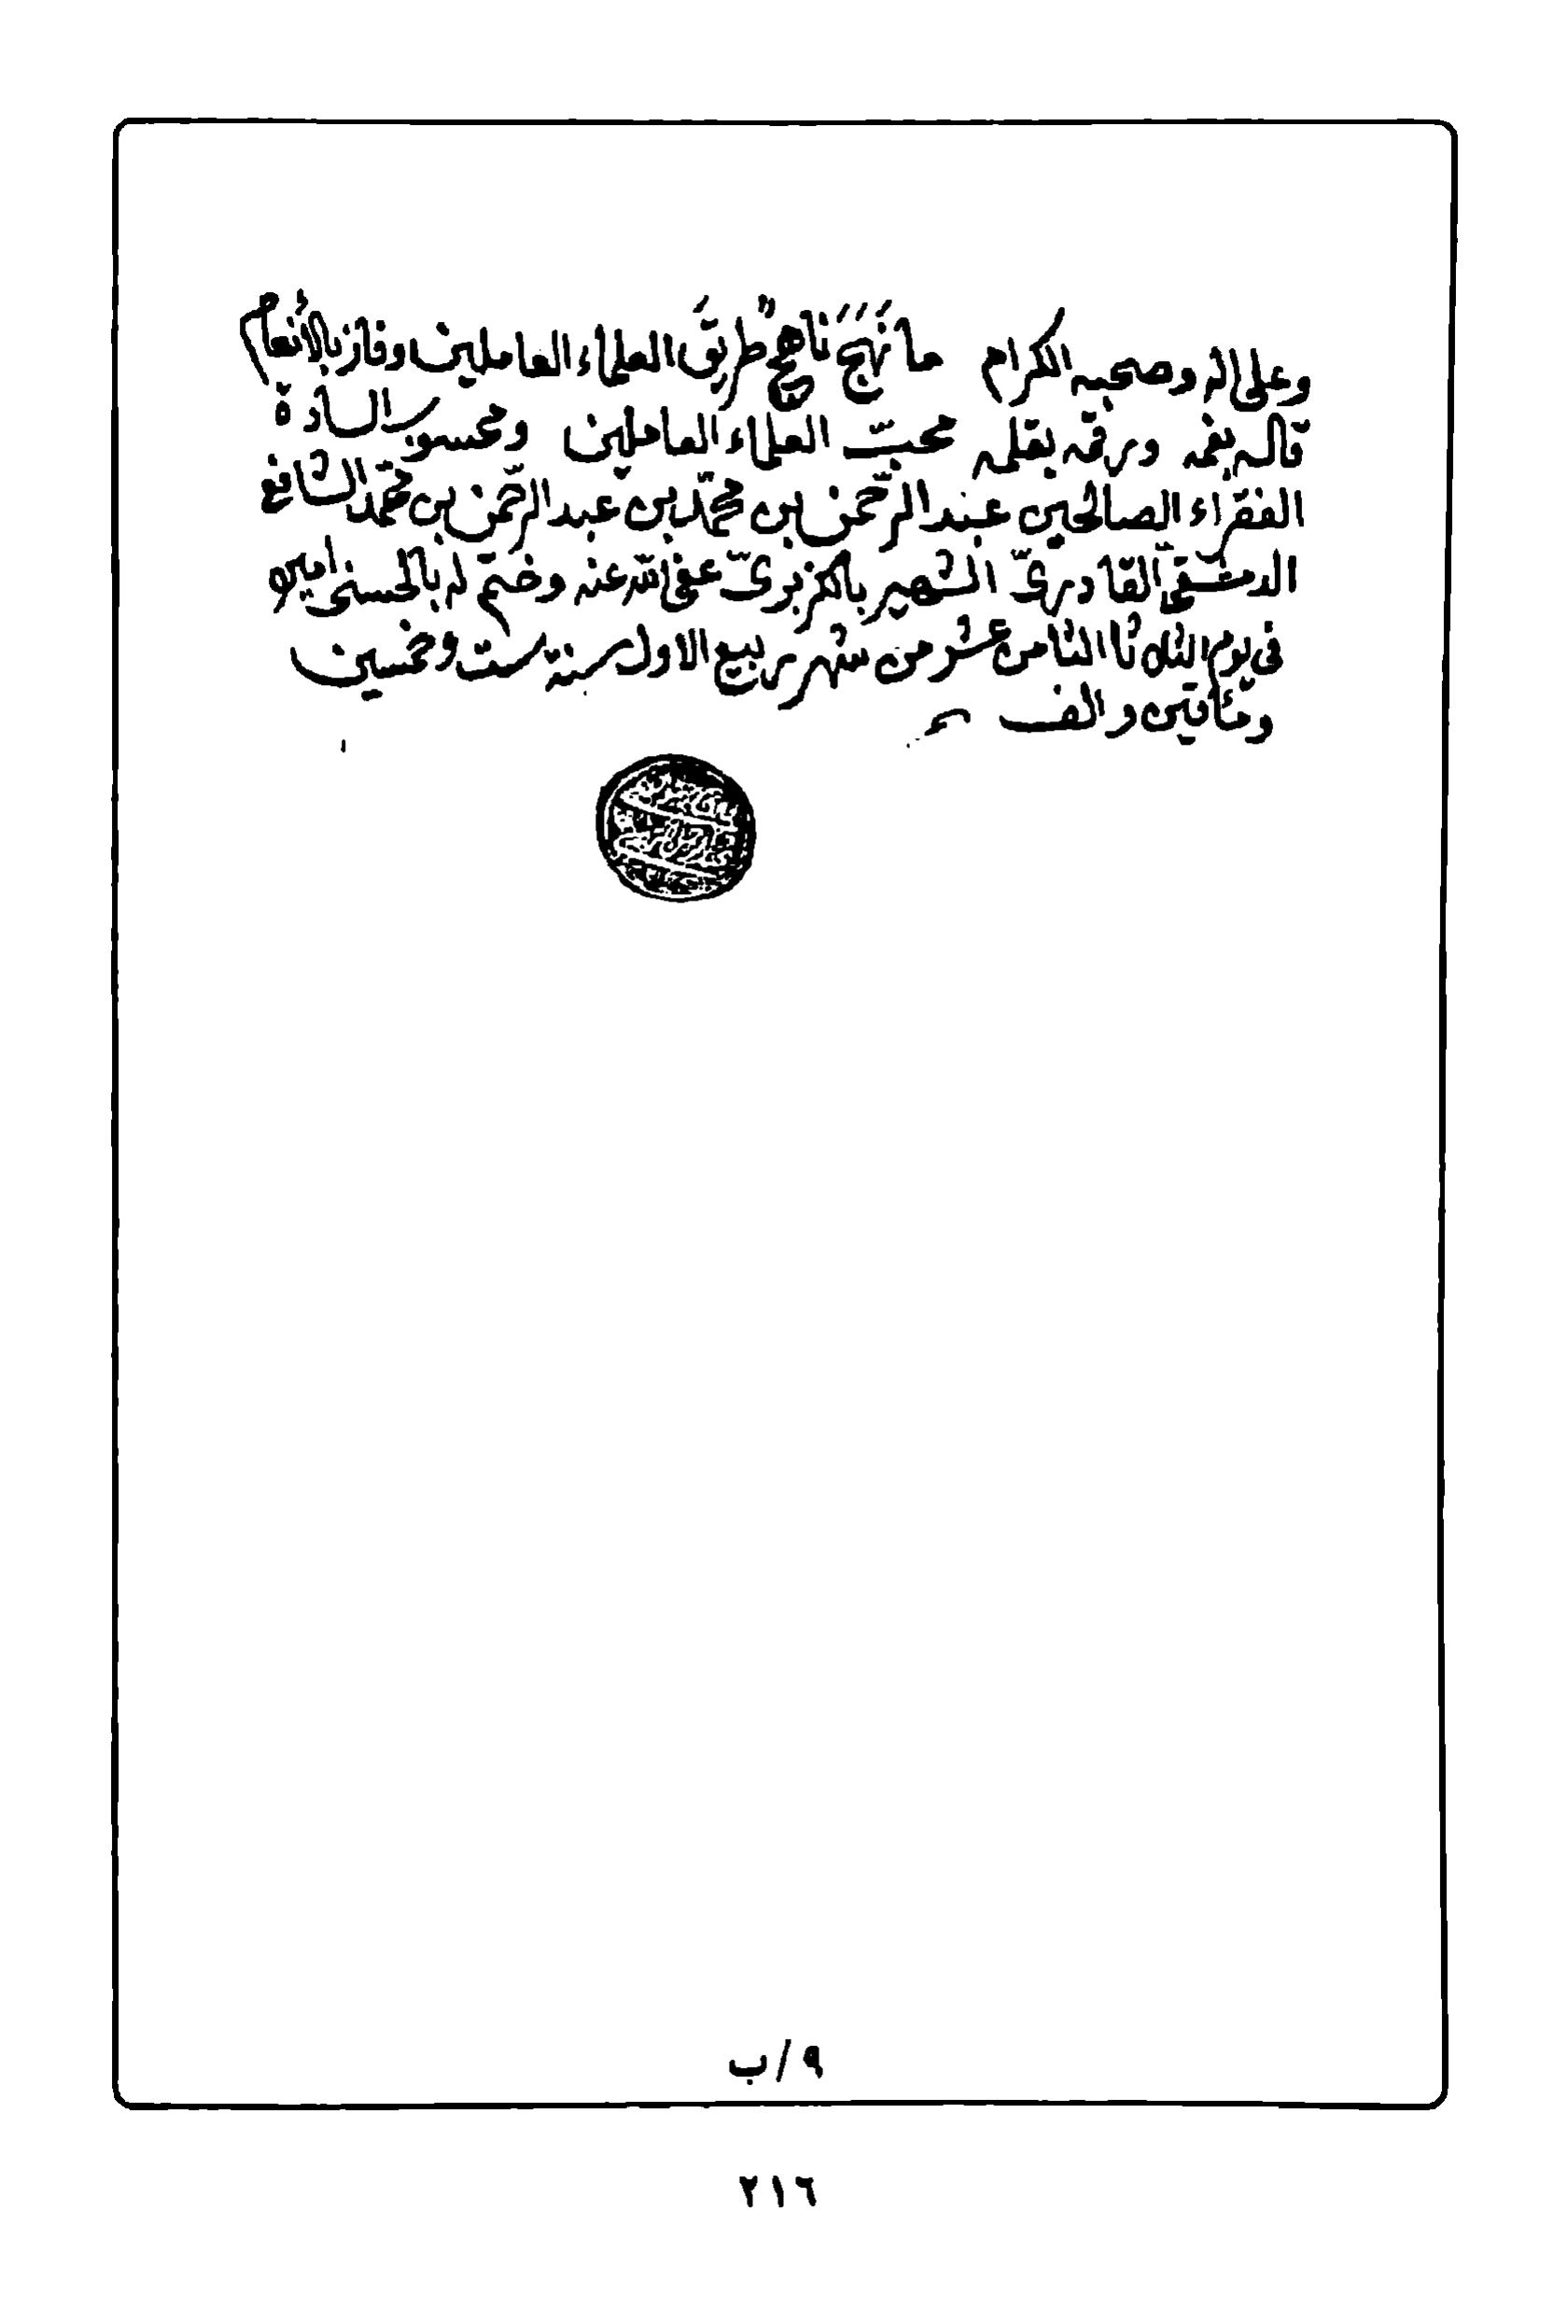 وعلى اله وصحبه الكرام ما نَهَجَ ناهجٌ طريقَ العلماء العاملين وفاز بالأنعام
قاله بفمه ورقمه بقلمه محبّ العلماء العاملين ومحسوب السادة
الفقراء الصالحين عبد الرّحمن بن محمّد بن عبد الرّحمن بن محمّد الشافعي
الدمشقيّ القادريّ الشهير بالكزبريّ عفى الله عنه وختم له بالحسنى امين
في يوم الثلاثا الثامن عشر من شهر ربيع الاول سنة ست وخمسين
ومئاتين والف
٩/ب
٢١٦